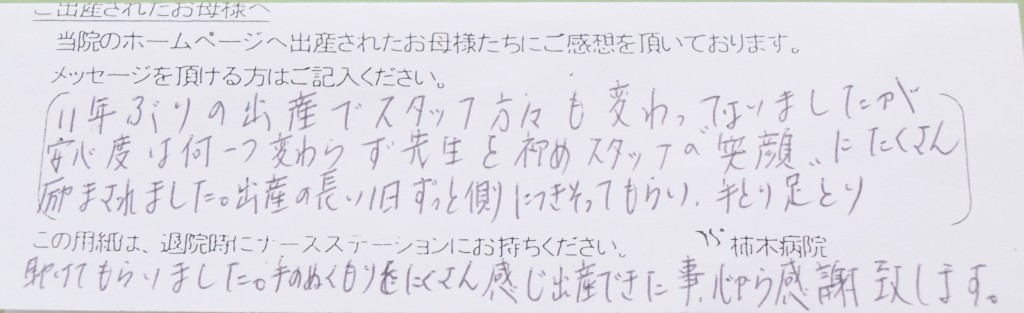 ご出産されたお母様へ
当院のホームページへ出産されたお母様たちにご感想を頂いております。
メッセージを頂ける方はご記入ください。
11年ぶりの出産でスタッフ方々も変わってはいましたが
安心度は何一つ変わらず先生を初めスタッフの"笑顔"にたくさん
励まされました。出産の長い1日ずっと側につきそってもらい、手とり足とり
この用紙は、退院時にナースステーションにお持ちください。
柿木病院
助けてもらいました。手のぬくもりをたくさん感じ出産できた事、心から感謝致します。